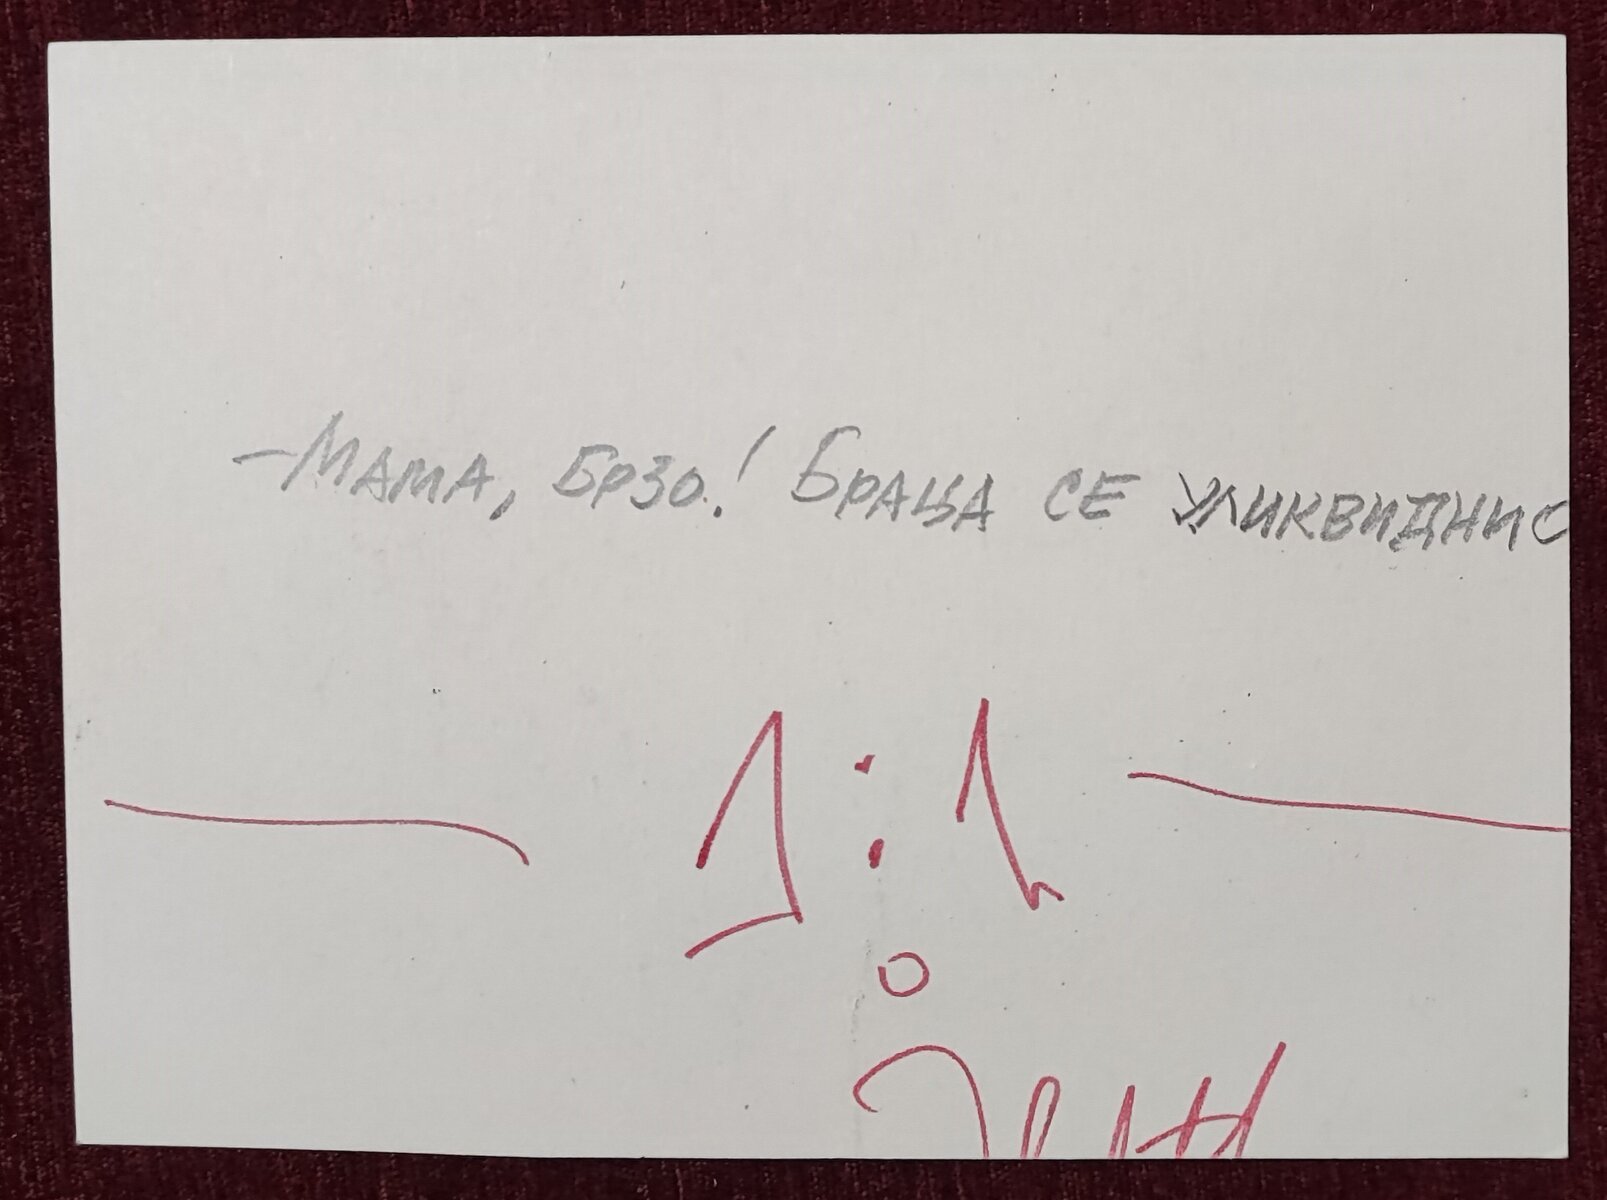 - Мама, брзо! Браца се уликвиднио
1:1